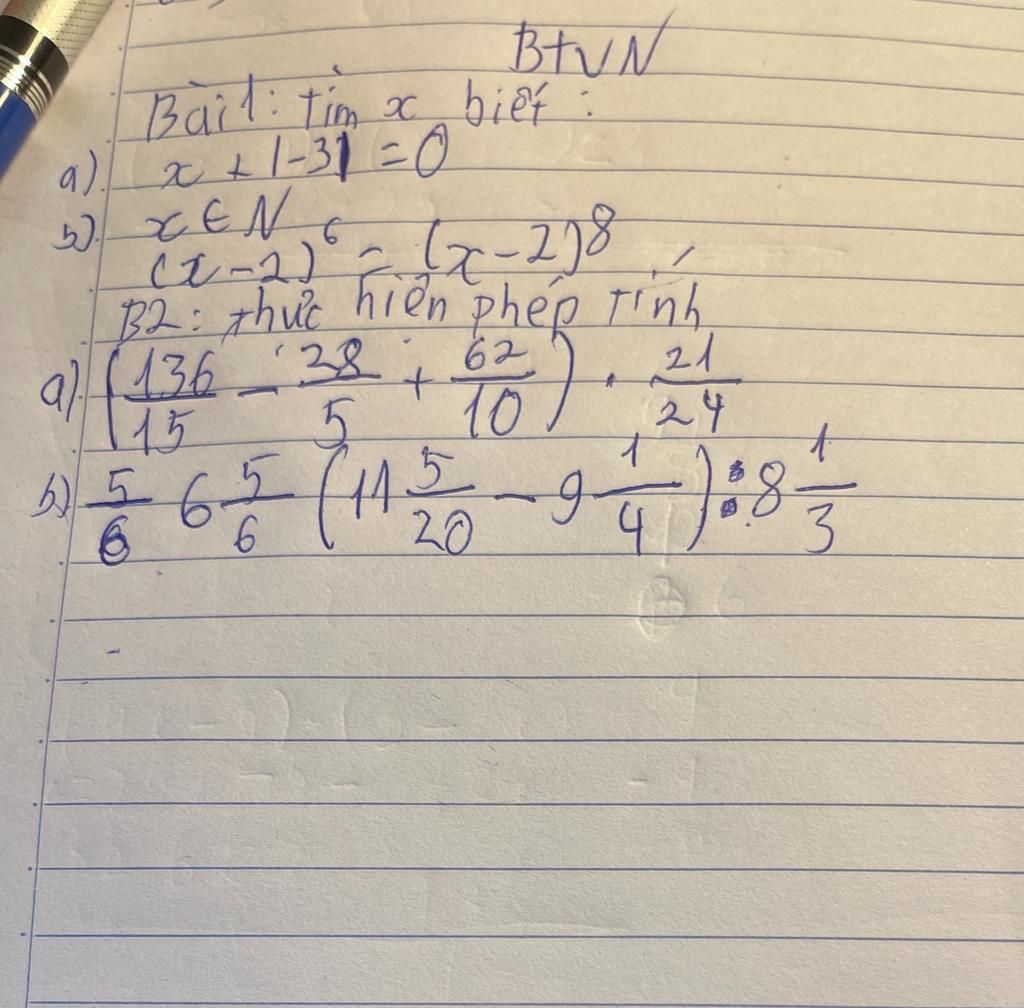 BTVN
Bài 1: tìm x biết :
a). x + |-3| = 0
b). x ∈ N
(x-2)^6 = (x-2)^8
B2: thực hiện phép tính
a). (136/15 - 28/5 + 62/10) . 21/24
b) 5/6 6 5/6 (11 5/20 - 9 1/4) : 8 1/3